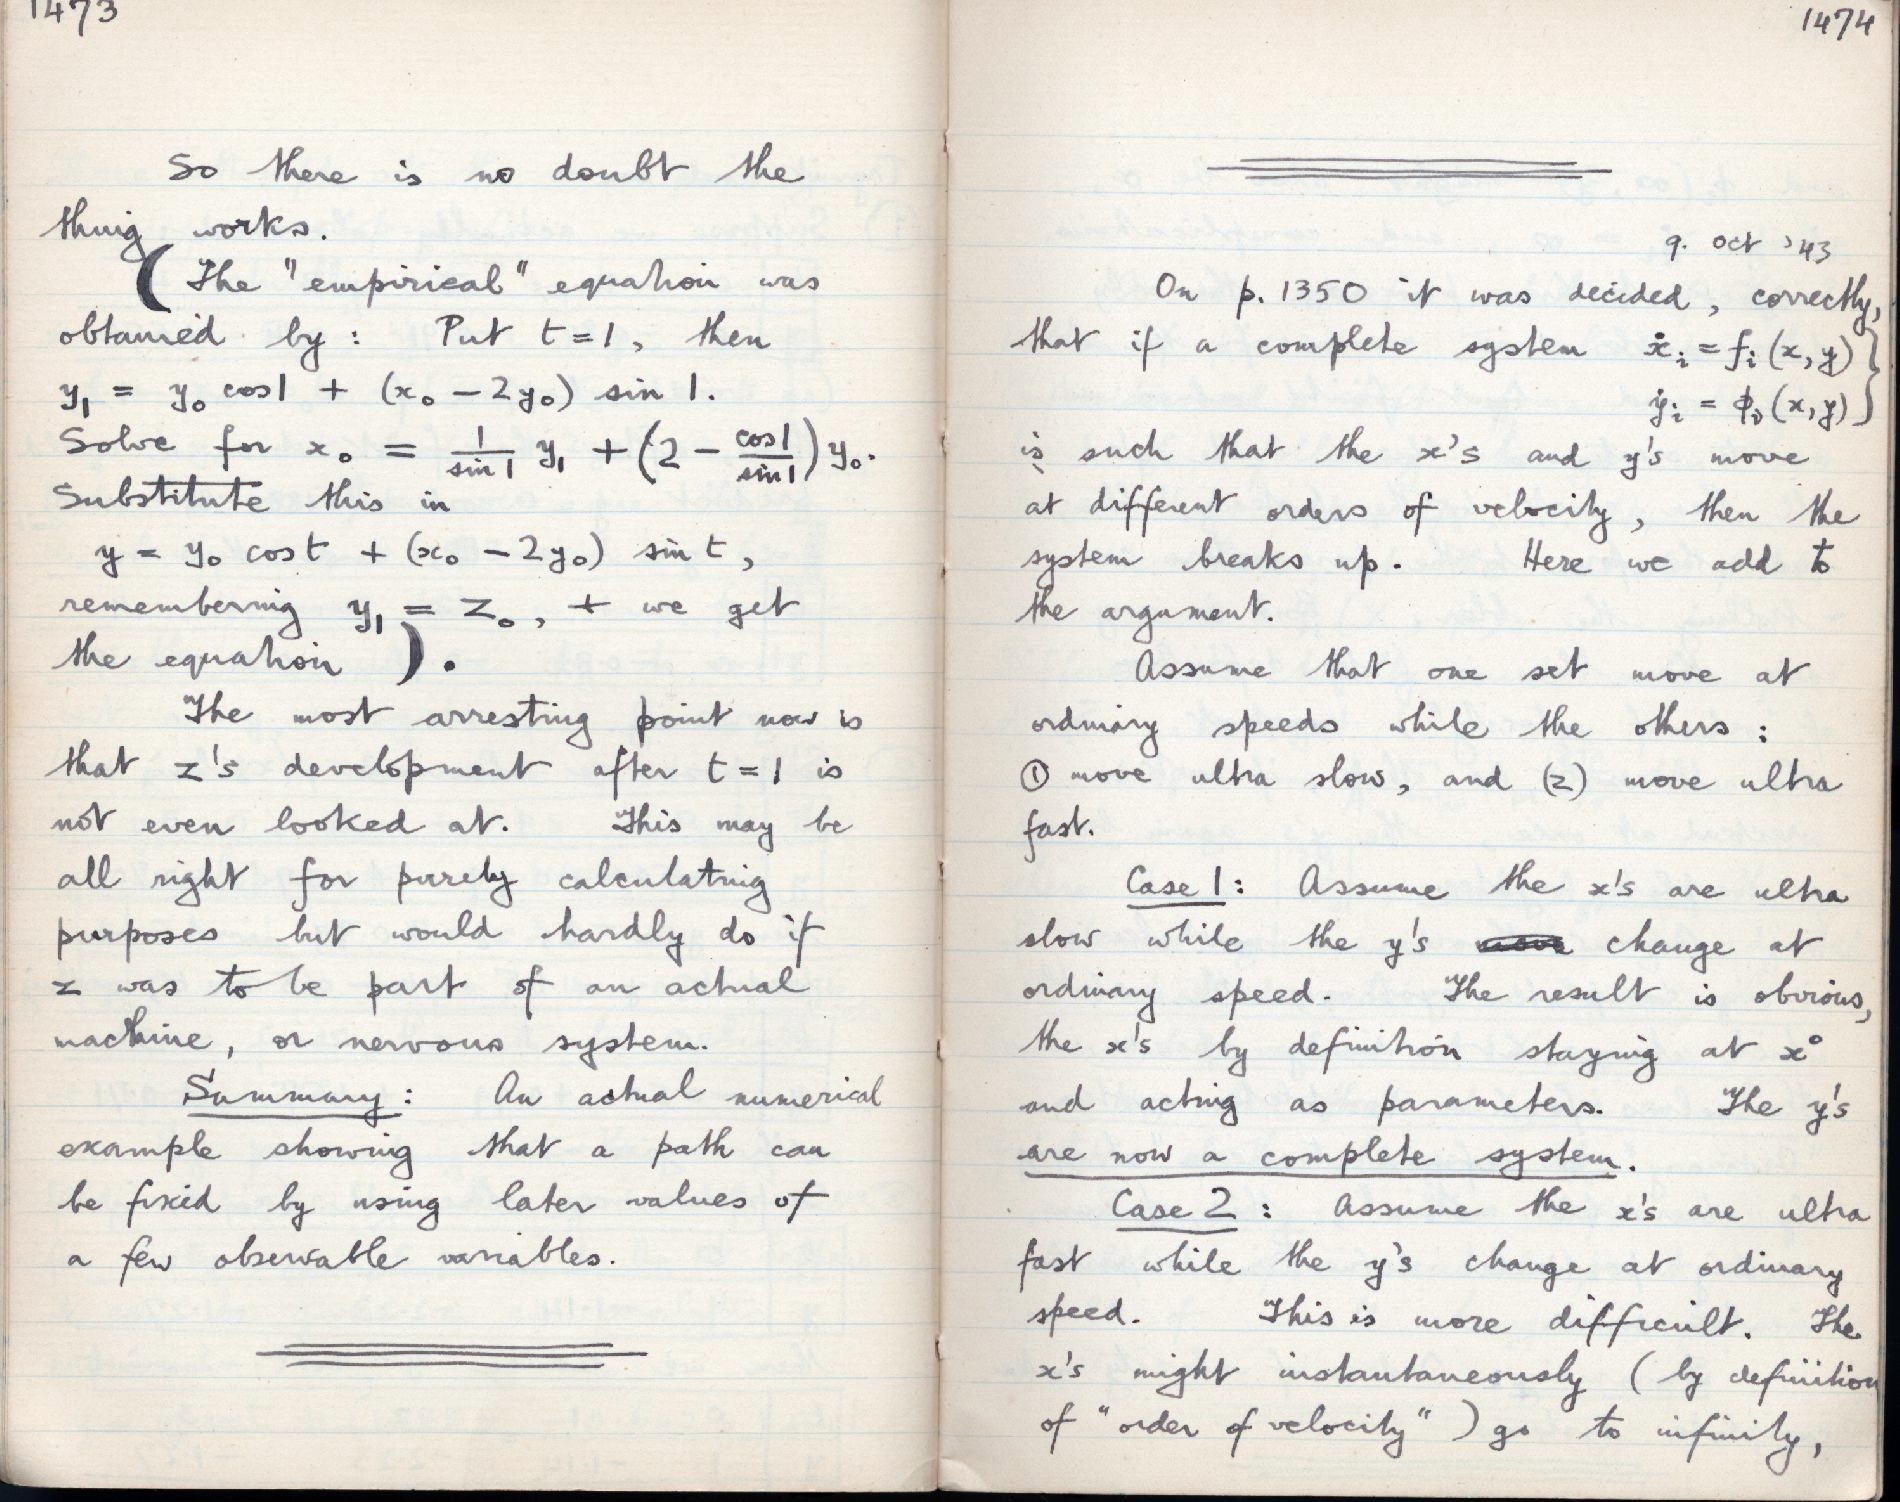 1473
So there is no doubt the
thing works.
(The "empirical" equation was
obtained by: Put t=1, then
y₁ = y₀ cos1 + (x₀ - 2y₀) sin 1.
Solve for x₀ = 1/sin1 y₁ + (2 - cos1/sin1) y₀.
Substitute this in
y = y₀ cos t + (x₀ - 2y₀) sin t,
remembering y₁ = z₀, + we get
the equation).
The most arresting point now is
that z's development after t=1 is
not even looked at. This may be
all right for purely calculating
purposes but would hardly do if
z was to be part of an actual
machine, or nervous system.
Summary: An actual numerical
example showing that a path can
be fixed by using later values of
a few observable variables.
1474
9. Oct '43
On p. 1350 it was decided, correctly,
that if a complete system ẋᵢ = fᵢ(x, y)}
ẏᵢ = ϕᵢ(x, y)}
is such that the x's and y's move
at different orders of velocity, then the
system breaks up. Here we add to
the argument.
Assume that one set move at
ordinary speeds while the others:
① move ultra slow, and (2) move ultra
fast.
Case 1: Assume the x's are ultra
slow while the y's move change at
ordinary speed. The result is obvious,
the x's by definition staying at x⁰
and acting as parameters. The y's
are now a complete system.
Case 2: Assume the x's are ultra
fast while the y's change at ordinary
speed. This is more difficult. The
x's might instantaneously (by definition
of "order of velocity") go to infinity,